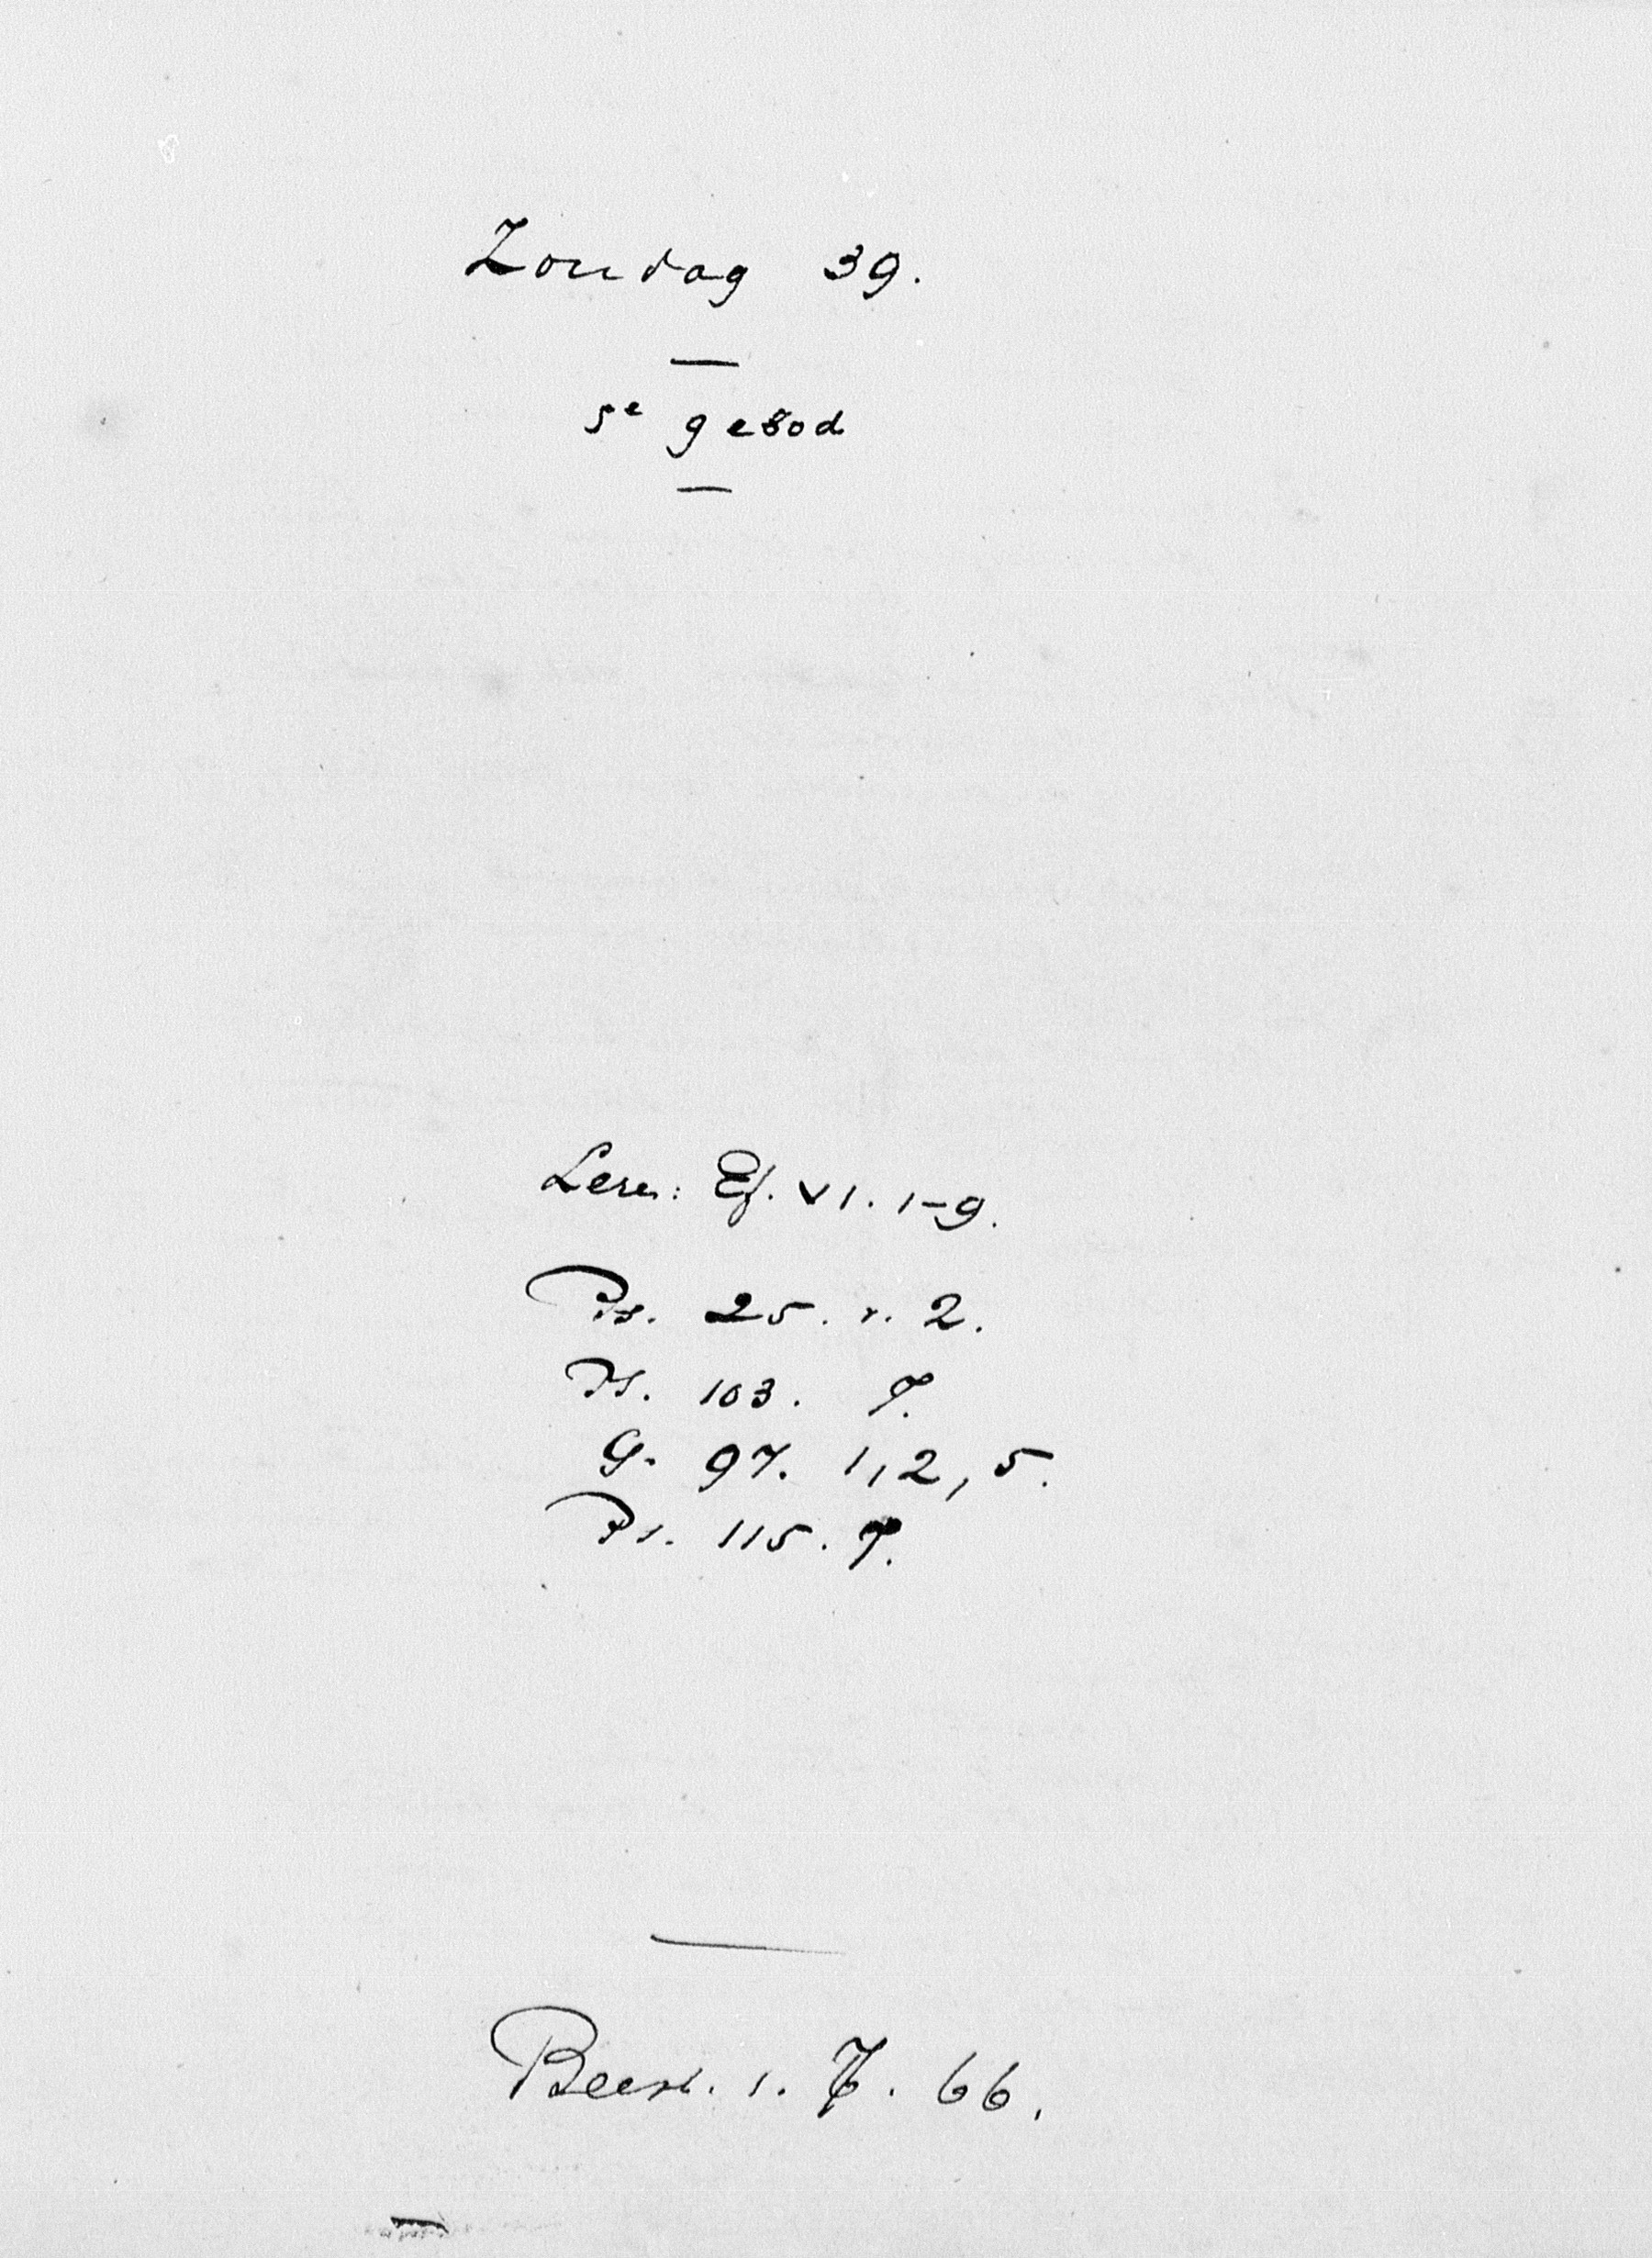 Zondag 39.
5e gebod
Lezen: Ef. VI. 1-9.
Ps. 25. v. 2.
Ps. 103. 7.
G. 97. 1, 2, 5.
Ps. 115. 7.
Beesd. 1. 7. 66.